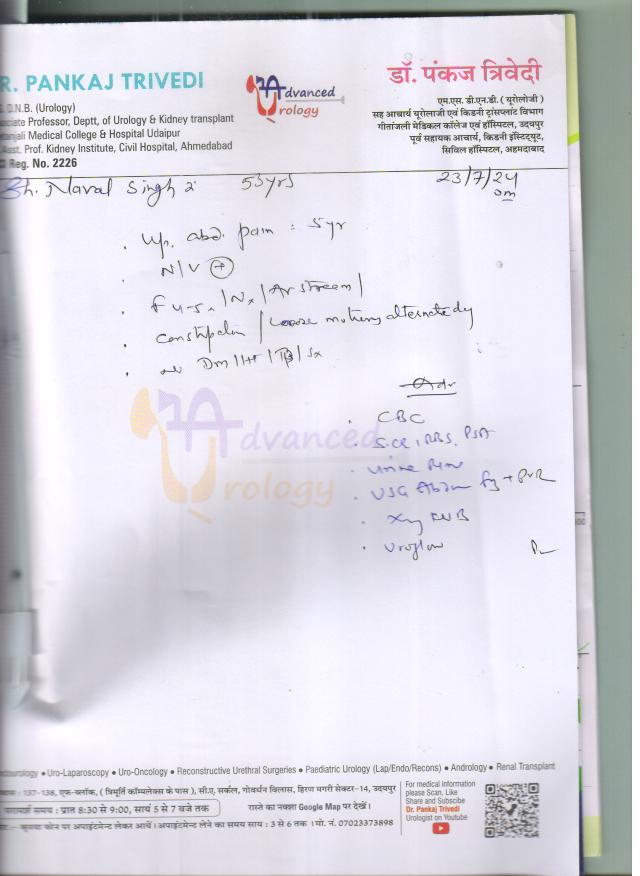 R. PANKAJ TRIVEDI
D.N.B. (Urology)
ociate Professor, Deptt. of Urology & Kidney transplant
etanjali Medical College & Hospital Udaipur
Asst. Prof. Kidney Institute, Civil Hospital, Ahmedabad
Reg. No. 2226
Advanced
Urology
डॉ. पंकज त्रिवेदी
एम.एस. डी.एन.डी. ( यूरोलोजी )
सह आचार्य यूरोलाजी एवं किडनी ट्रांसप्लांट विभाग
गीतांजली मेडिकल कॉलेज एवं हॉस्पिटल, उदयपुर
पूर्व सहायक आचार्य, किडनी इंस्टिट्यूट,
सिविल हॉस्पीटल, अहमदाबाद
Sh. Naval Singh 53yrs 23/7/24
. Up. abd. pain : 5yr
. N/V +
. constipation / Loose motions alternately
. DM / HT / TB / Sx
Adv
. CBC
. S.Cr, RBS, PSA
. Urine
. USG Abdm + PVR
. Xray KUB
. Uroflow
Advanced
Urology
ndourology • Uro-Laparoscopy • Uro-Oncology • Reconstructive Urethral Surgeries • Paediatric Urology (Lap/Endo/Recons) • Andrology • Renal Transplant
: 137-138, एफ-ब्लॉक, ( त्रिमूर्ति कॉम्पलेक्स के पास ), सी.ए. सर्कल, गोवर्धन विलास, हिरण मगरी सेक्टर-14, उदयपुर
परामर्श समय : प्रात 8:30 से 9:00, सायं 5 से 7 बजे तक रास्ते का नक्शा Google Map पर देखें।
:- कृपया फोन पर अपाईंटमेन्ट लेकर आयें। अपाईंटमेन्ट लेने का समय सायं : 3 से 6 तक । मो. नं. 07023373898
For medical information
please Scan, Like
Share and Subscibe
Dr. Pankaj Trivedi
Urologist on Youtube